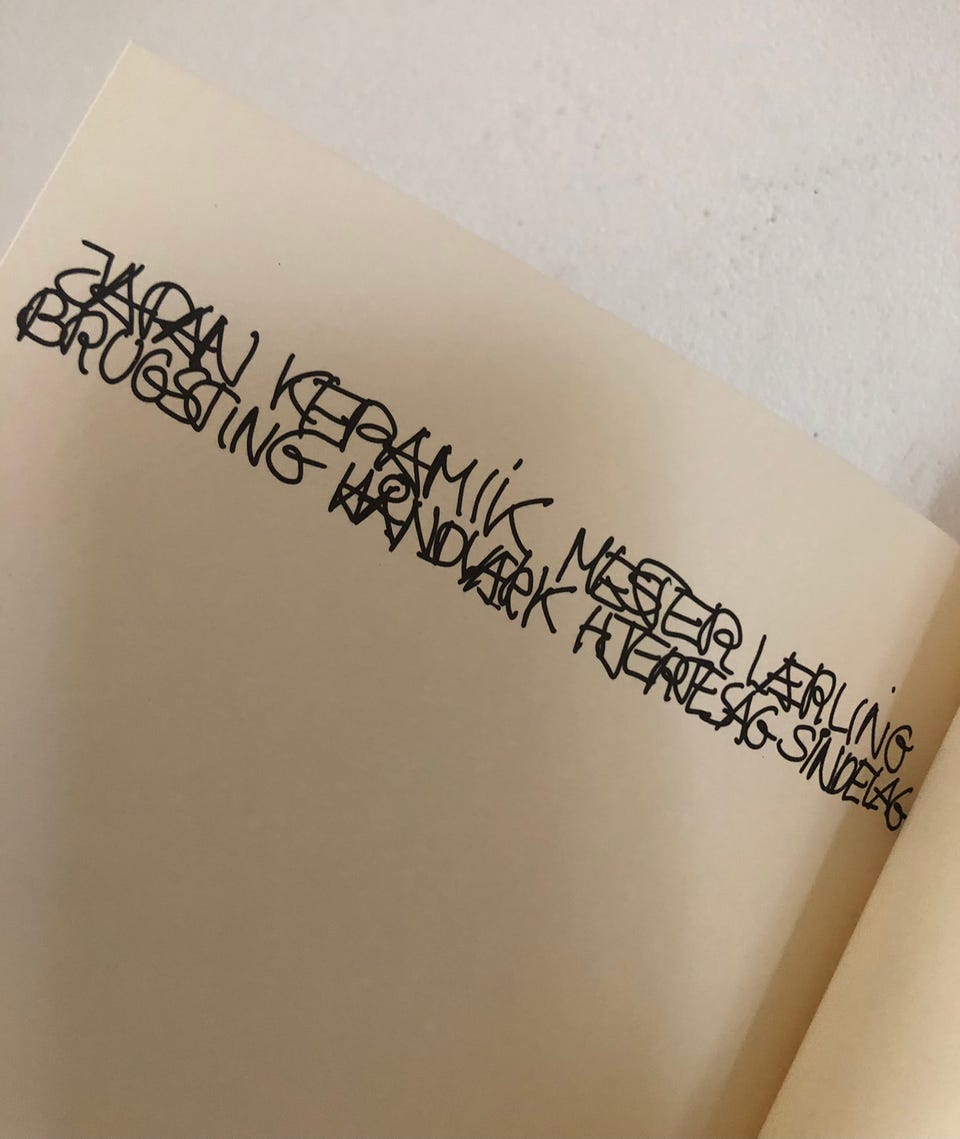 JAPAN KERAMIIK MESTER LÆRLING
BRUGSTING HÅNDVÆRK HJERTESAG SINDELAG